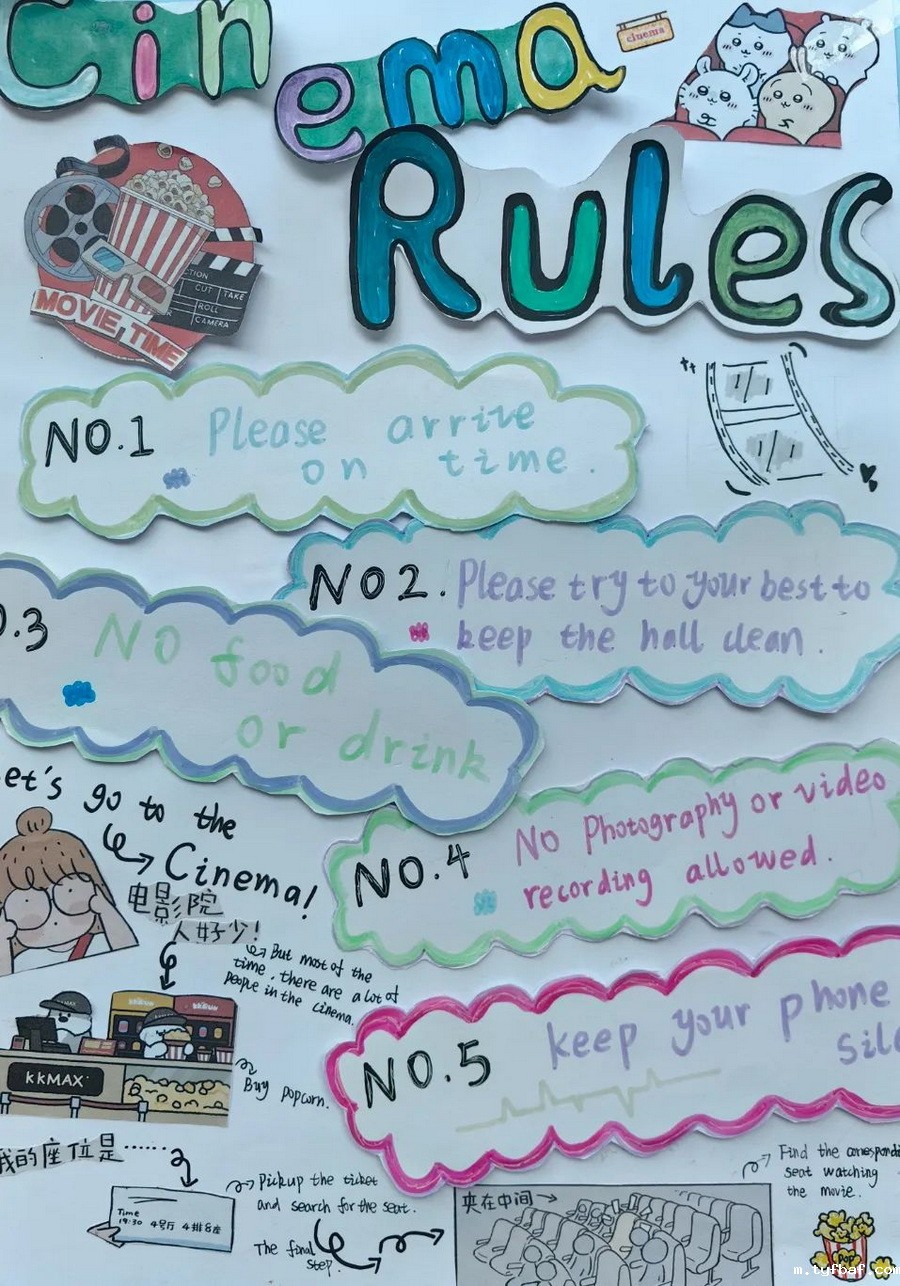 Cinema
cinema
Rules
ACTION
CUT TAKE
ROLL
CAMERA
MOVIE TIME
NO.1 Please arrive
on time.
NO2. Please try to your best to
keep the hall clean.
.3 NO food
or drink
NO.4 NO Photography or video
recording allowed.
et's go to the
Cinema!
电影院
人好少!
But most of the
time, there are a lot of
people in the cinema.
NO.5 keep your phone
sile
KKMAX
Buy popcorn.
我的座位是······
Time
19:30 4号厅 4排8座
Pick up the ticket
and search for the seat.
The final
step.
夹在中间
Find the correspondi
seat watching
the movie.
Pop
m.tyfbaf.com